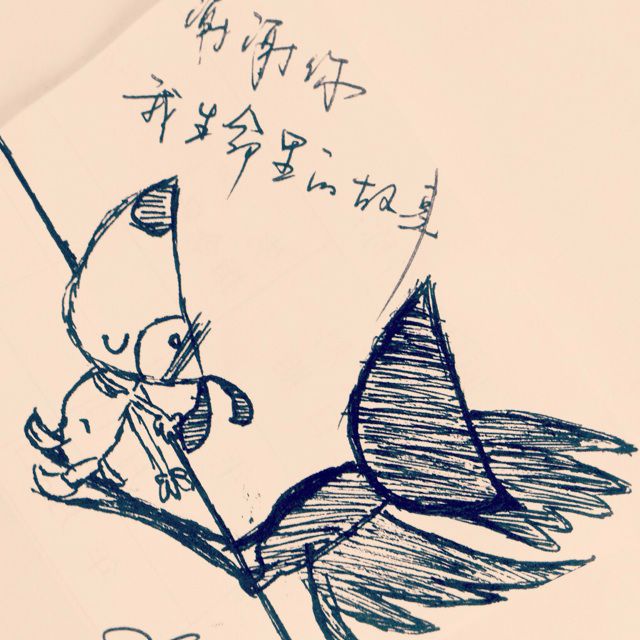 谢谢你
我生命里的故事